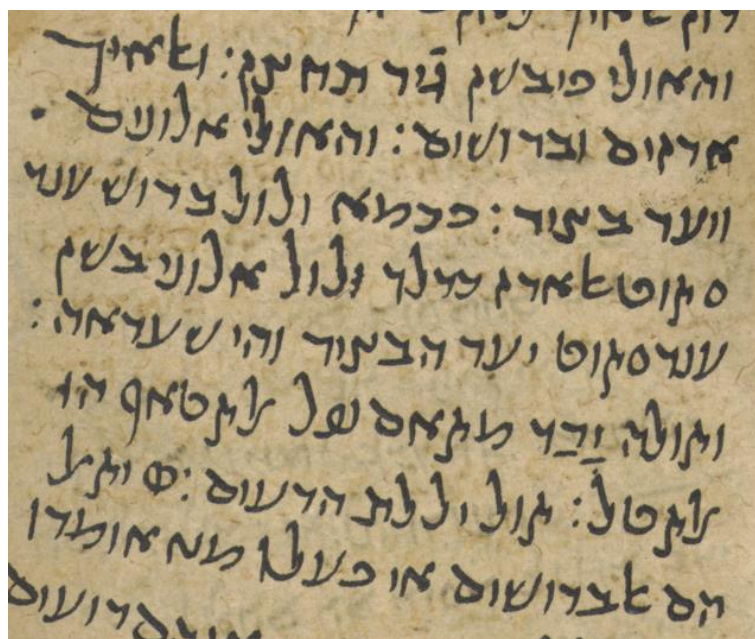 והאולי פיבשן גיר תחתן: ואלאיך
ארזים וברושים: והאולי אלונים
ויער בציר: פכמא ילול ברוש ענד
סקוט אלארז כדלך ילול אלוני בשן
ענד סקוט יער הבציר והי שעראה:
וקולה ירד מקאם נפל לקטאף הו
לקטל: קול יללת הרעים: יקל
הם אלברושים או פעלו מא אומרו